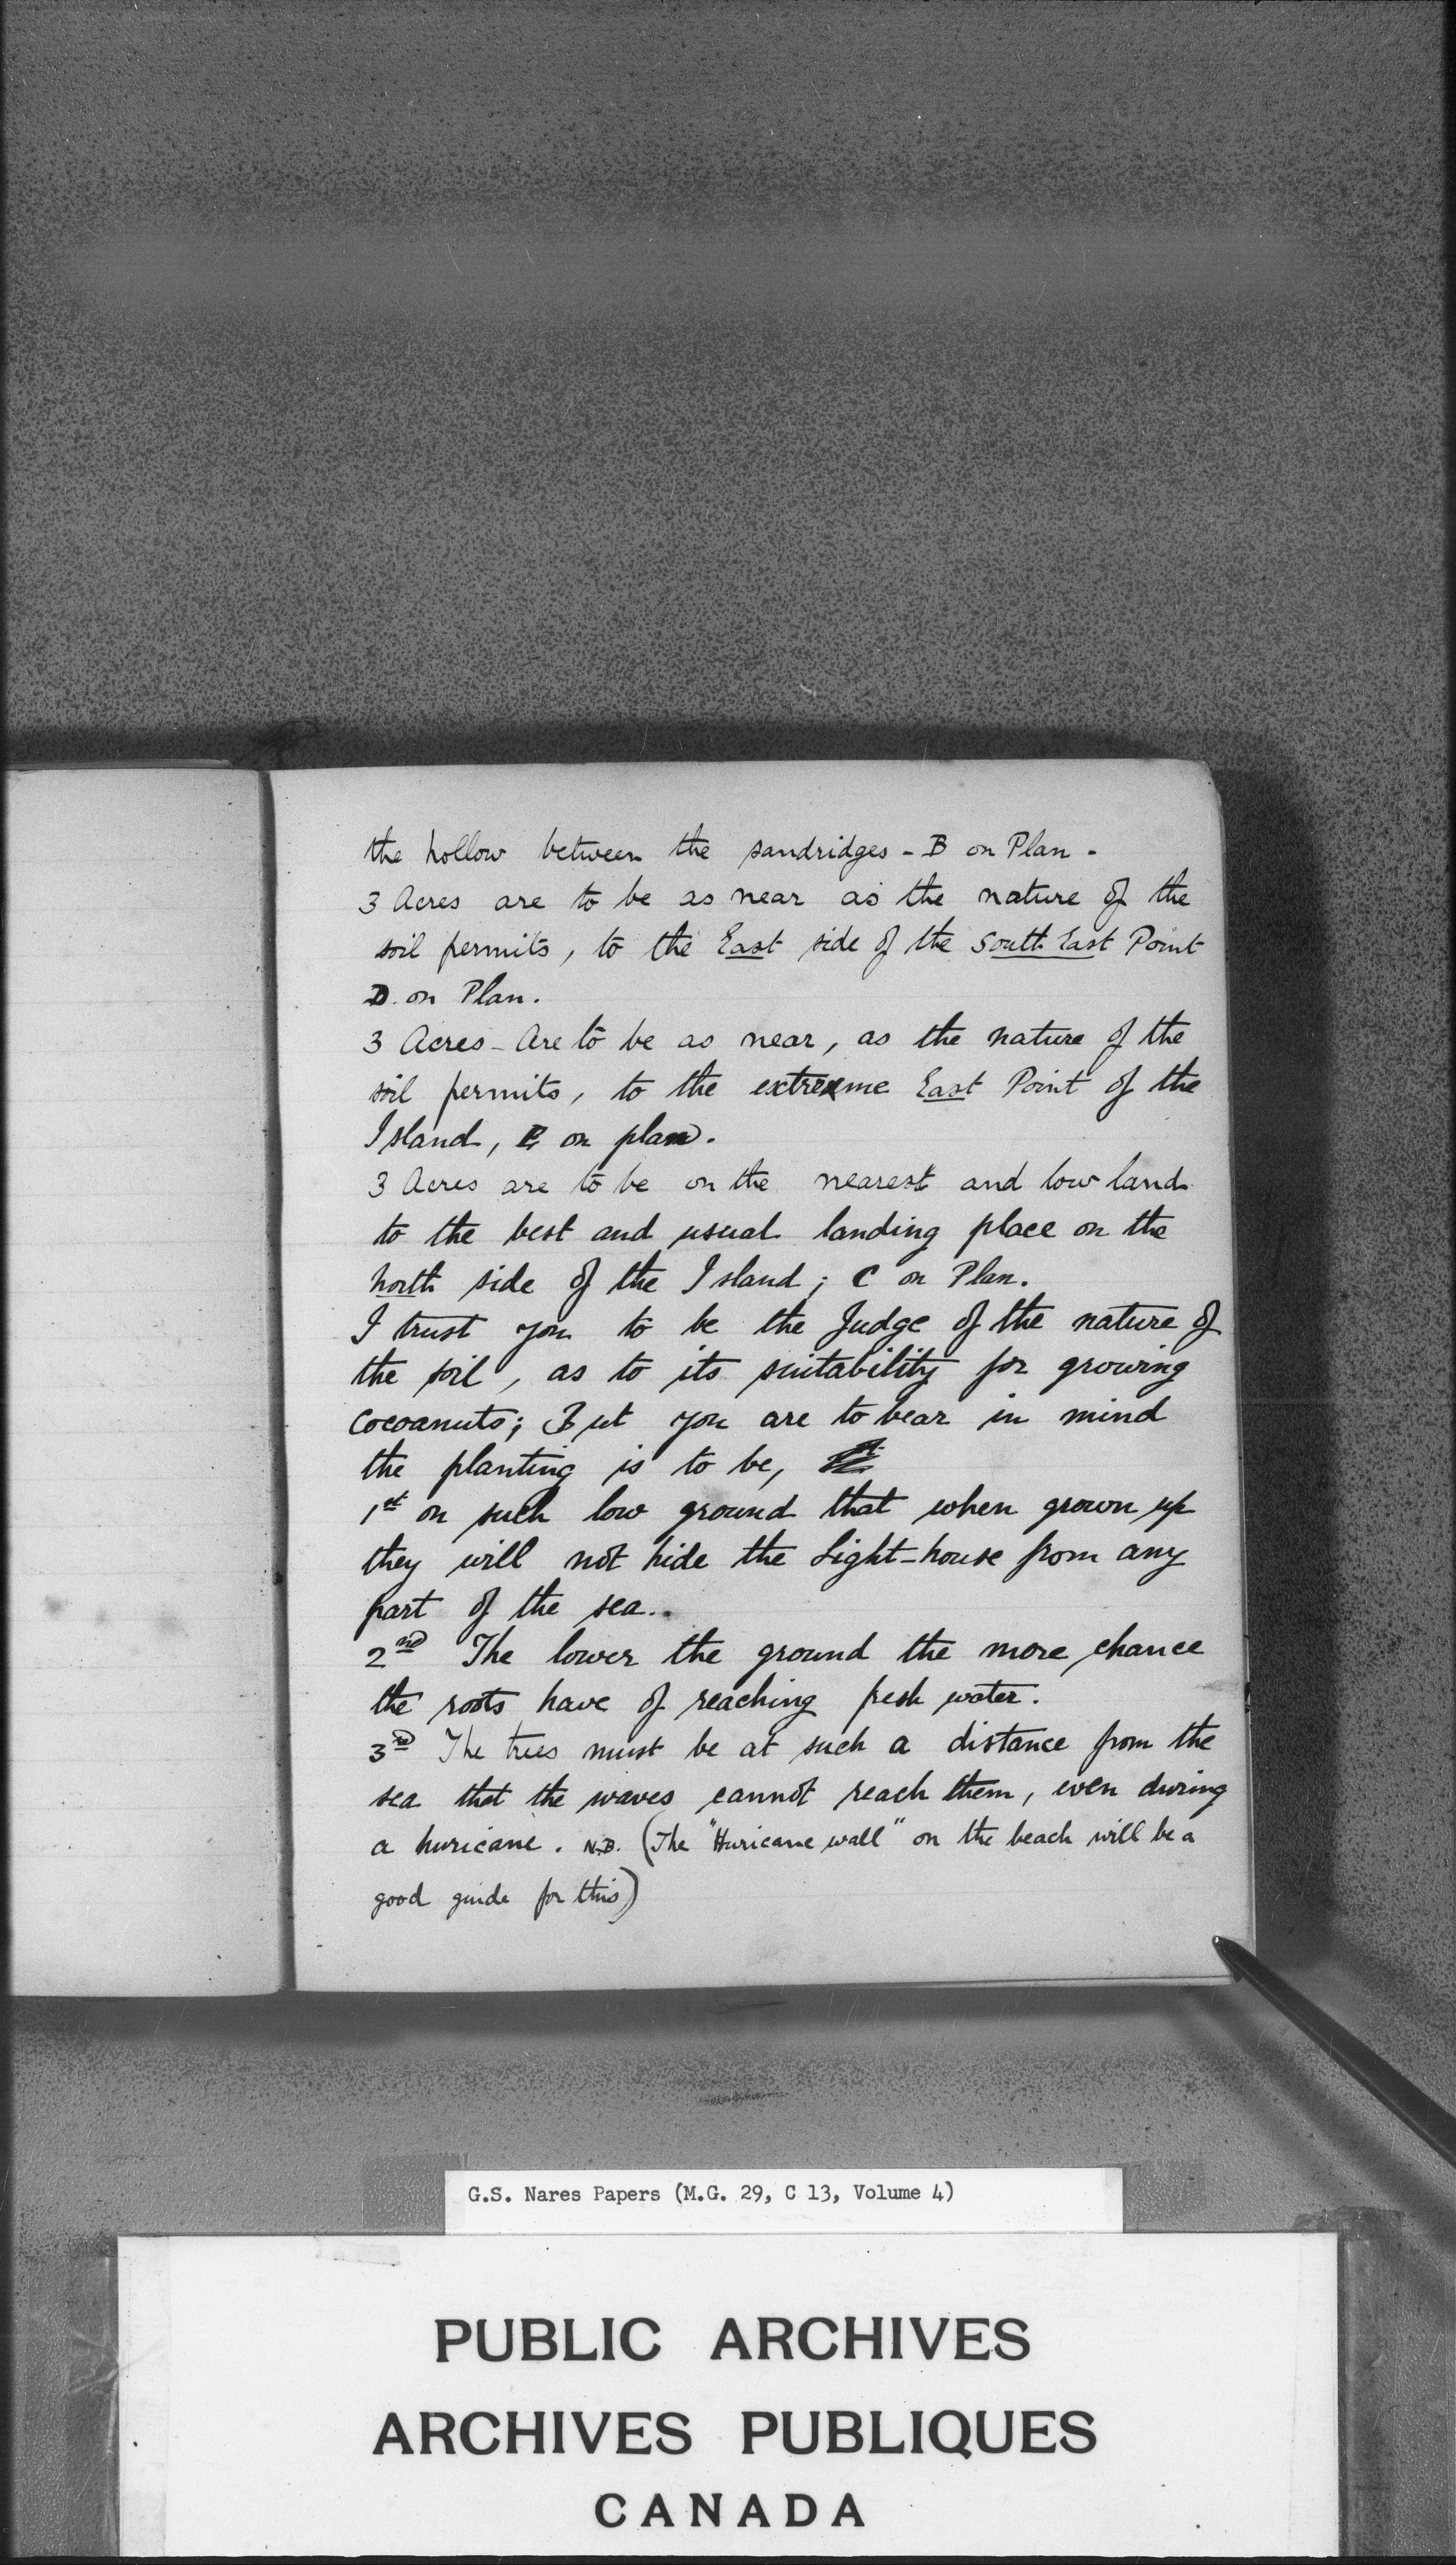 the hollow between the sandridges - B on Plan -
3 Acres are to be as near as the nature of the
soil permits, to the East side of the South East Point
D. on Plan.
3 Acres - Are to be as near, as the nature of the
soil permits, to the extreme East Point of the
Island, E on plan.
3 Acres are to be on the nearest and low land
to the best and usual landing place on the
North side of the Island; C on Plan.
I trust you to be the Judge of the nature of
the soil, as to its suitability for growing
Cocoanuts; But you are to bear in mind
the planting is to be,
1st on such low ground that when grown up
they will not hide the Light-house from any
part of the sea..
2nd The lower the ground the more chance
the roots have of reaching fresh water.
3rd The trees must be at such a distance from the
sea that the waves cannot reach them, even during
a huricane. N.B. (The "Huricane wall" on the beach will be a
good guide for this)
G.S. Nares Papers (M.G. 29, C 13, Volume 4)
PUBLIC ARCHIVES
ARCHIVES PUBLIQUES
CANADA